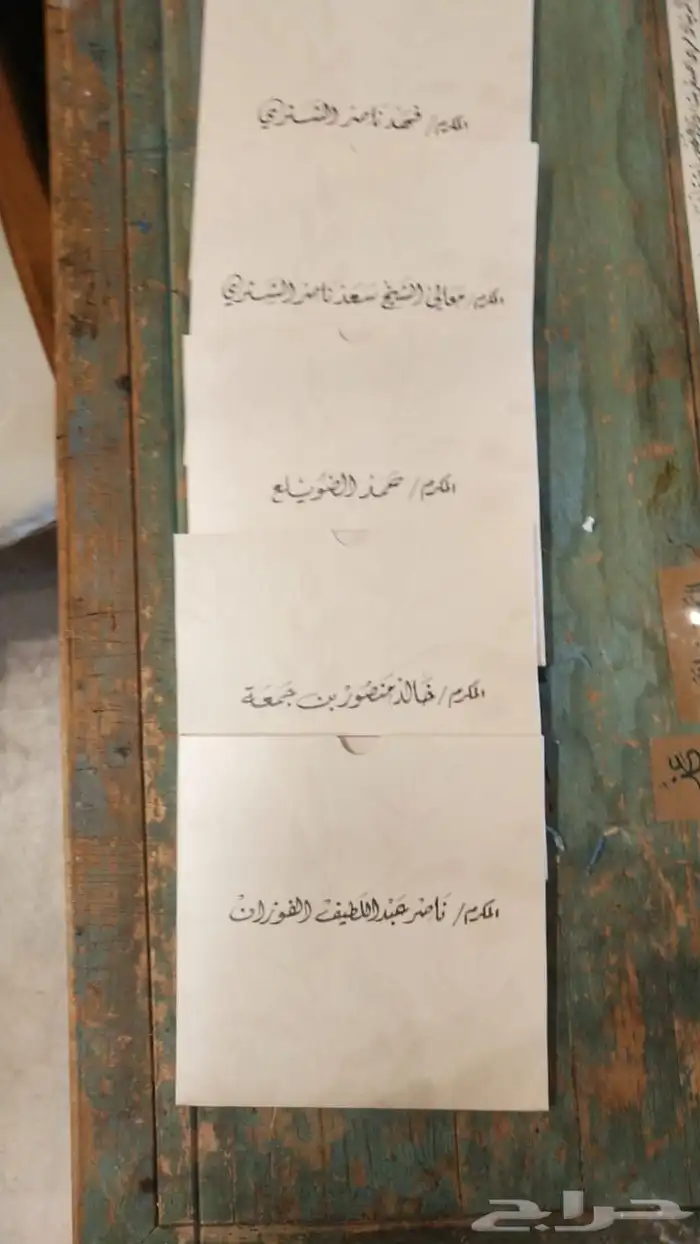 المكرم/ فهد ناصر الشثري
المكرم/ معالي الشيخ سعد ناصر الشثري
المكرم/ حمد الضويلع
المكرم/ خالد منصور بن جمعة
المكرم/ ناصر عبداللطيف الفوزان
حراج